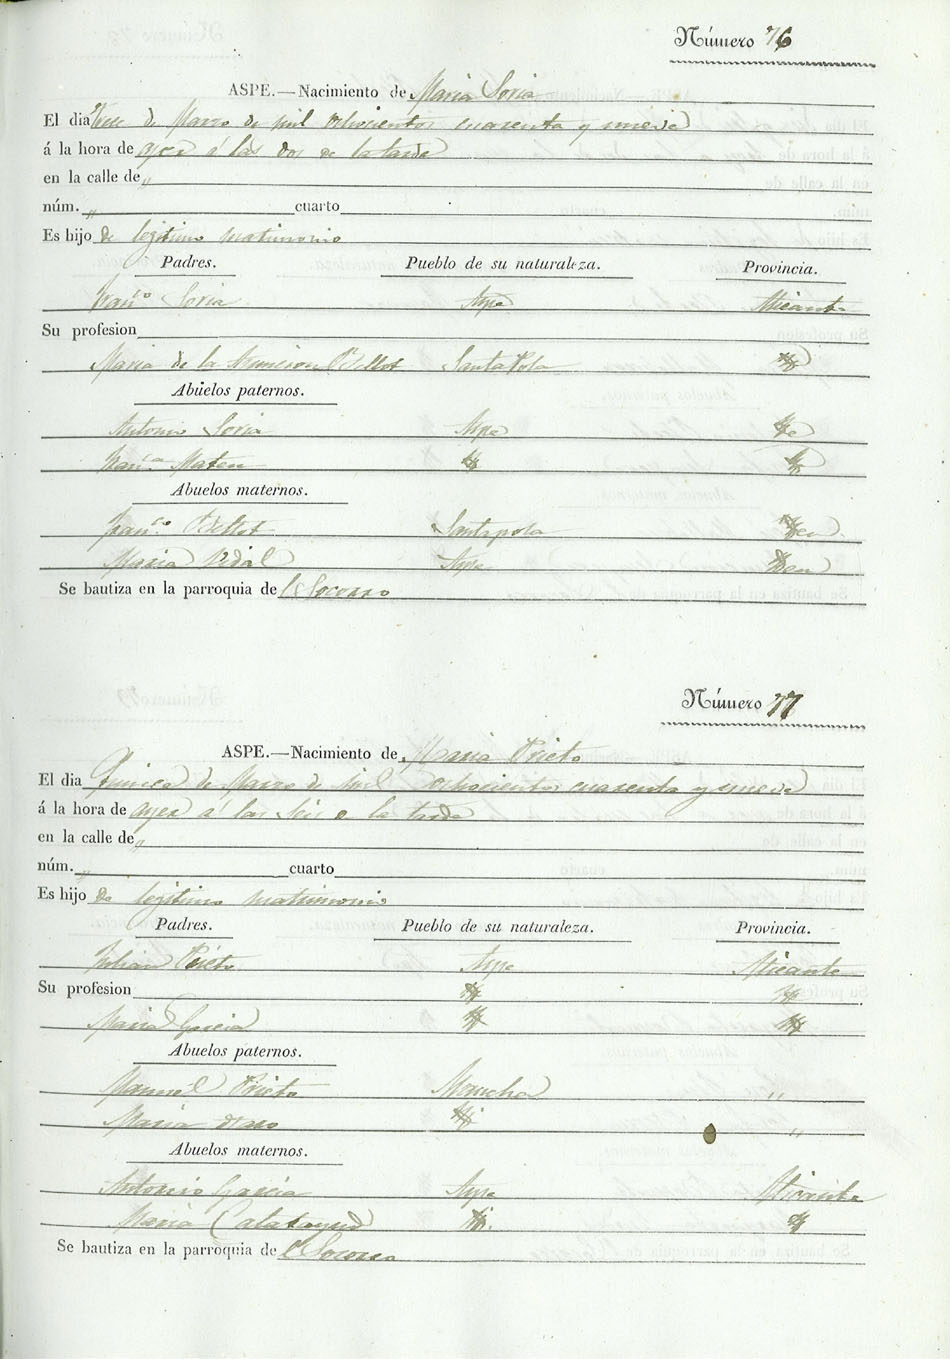 Número 76
ASPE.—Nacimiento de Maria Soria
El dia trece de Marzo de mil ochocientos cuarenta y nueve
á la hora de ayer á las dos de la tarde
en la calle de „
núm. „ cuarto
Es hijo de legitimo matrimonio
Padres. Pueblo de su naturaleza. Provincia.
Franco Soria Aspe Alicante
Su profesion
Maria de la Asuncion Bellot Santa Pola
Abuelos paternos.
Antonio Soria Aspe
Franca Mateu
Abuelos maternos.
Franco Bellot Santapola
Maria Vidal Aspe
Se bautiza en la parroquia del Socorro
Número 77
ASPE.—Nacimiento de Maria Prieto
El dia Quince de Marzo de mil ochocientos cuarenta y nueve
á la hora de ayer á las seis de la tarde
en la calle de „
núm. „ cuarto
Es hijo de legitimo matrimonio
Padres. Pueblo de su naturaleza. Provincia.
Julian Prieto Aspe Alicante
Su profesion
Maria Garcia
Abuelos paternos.
Manuel Prieto Mancha „
Maria „
Abuelos maternos.
Antonio Garcia Aspe Alicante
Maria Calatayud
Se bautiza en la parroquia del Socorro